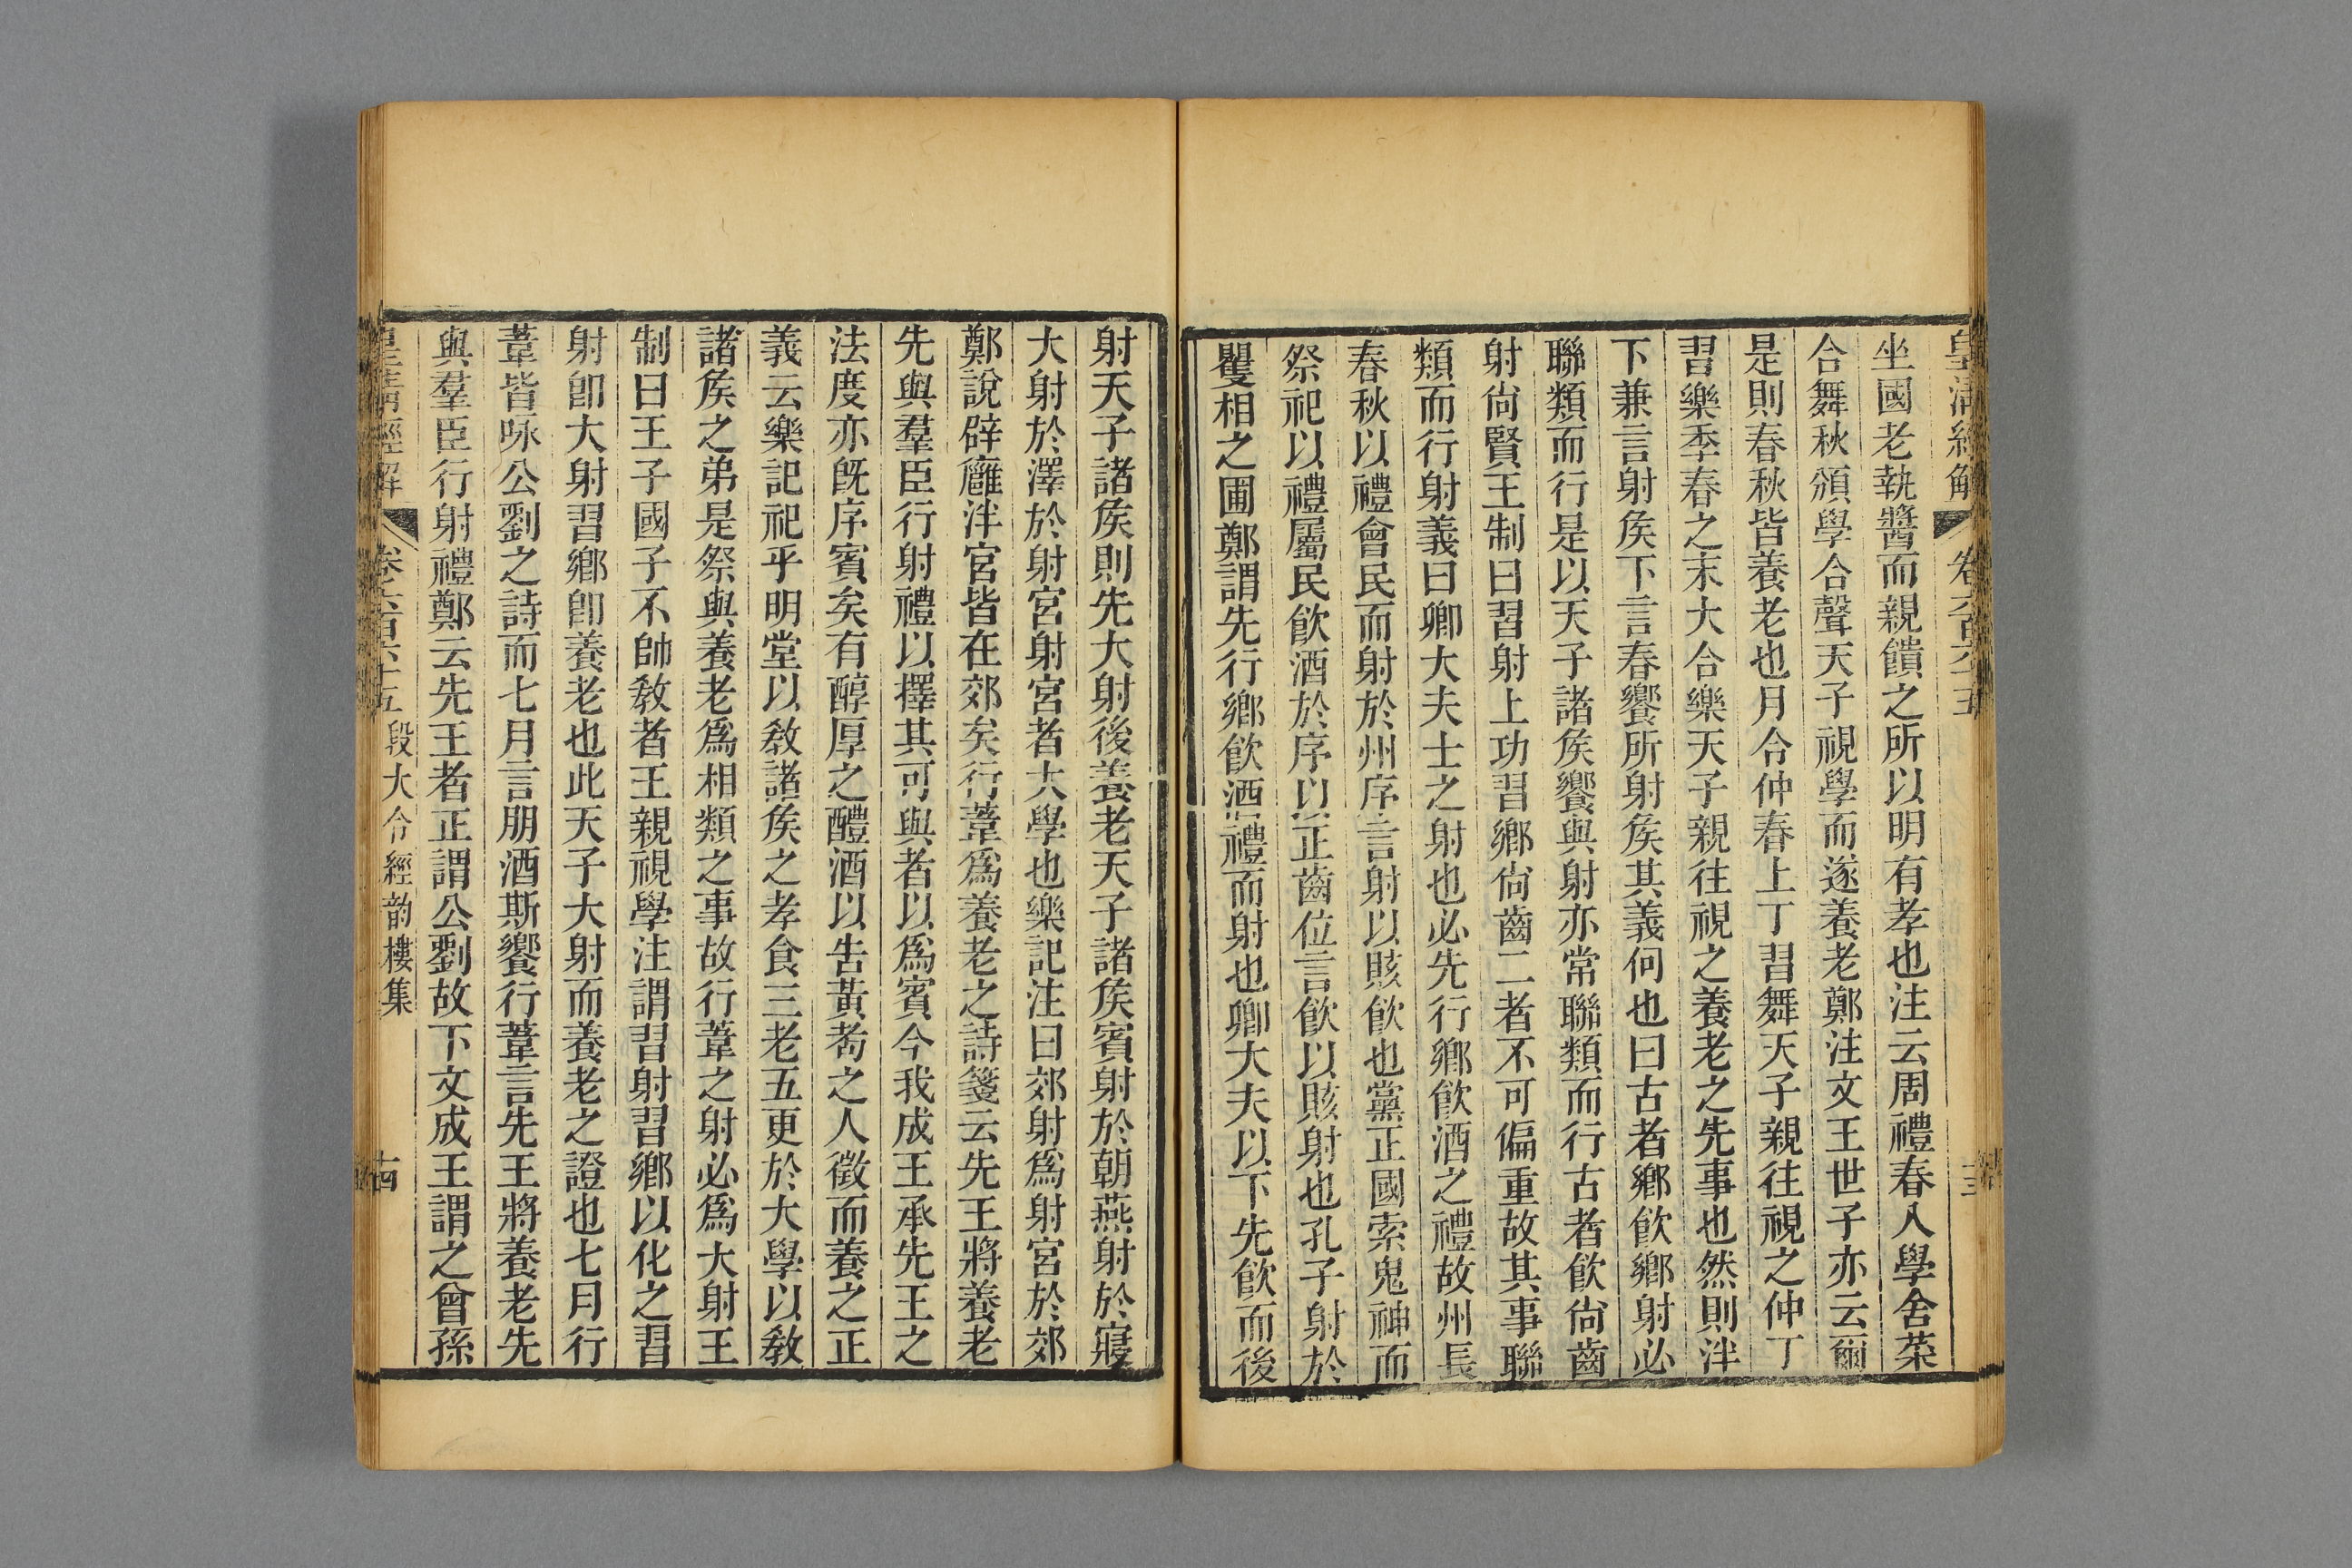 皇清經解 卷六百六十五 十三
坐國老執醬而親饋之所以明有孝也注云周禮春入學舍菜
合舞秋頒學合聲天子視學而遂養老鄭注文王世子亦云爾
是則春秋皆養老也月令仲春上丁習舞天子親往視之仲丁
習樂季春之末大合樂天子親往視之養老之先事也然則泮
下兼言射矦下言春饗所射矦其義何也曰古者鄉飲鄉射必
聯類而行是以天子諸矦饗與射亦常聯類而行古者飲尙齒
射尙賢王制曰習射上功習鄉尙齒二者不可偏重故其事聯
類而行射義曰卿大夫士之射也必先行鄉飲酒之禮故州長
春秋以禮會民而射於州序言射以賅飲也黨正國索鬼神而
祭祀以禮屬民飲酒於序以正齒位言飲以賅射也孔子射於
矍相之圃鄭謂先行鄉飲酒禮而射也卿大夫以下先飲而後
射天子諸矦則先大射後養老天子諸矦賓射於朝燕射於寢
大射於澤於射宮射宮者大學也樂記注曰郊射爲射宮於郊
鄭說辟廱泮宮皆在郊矣行葦爲養老之詩箋云先王將養老
先與羣臣行射禮以擇其可與者以爲賓今我成王承先王之
法度亦旣序賓矣有醇厚之醴酒以告黃耇之人徵而養之正
義云樂記祀乎明堂以敎諸矦之孝食三老五更於大學以敎
諸矦之弟是祭與養老爲相類之事故行葦之射必爲大射王
制曰王子國子不帥敎者王親視學注謂習射習鄉以化之習
射卽大射習鄉卽養老也此天子大射而養老之證也七月行
葦皆咏公劉之詩而七月言朋酒斯饗行葦言先王將養老先
與羣臣行射禮鄭云先王者正謂公劉故下文成王謂之曾孫
皇清經解 卷六百六十五 段大令經韵樓集 十四